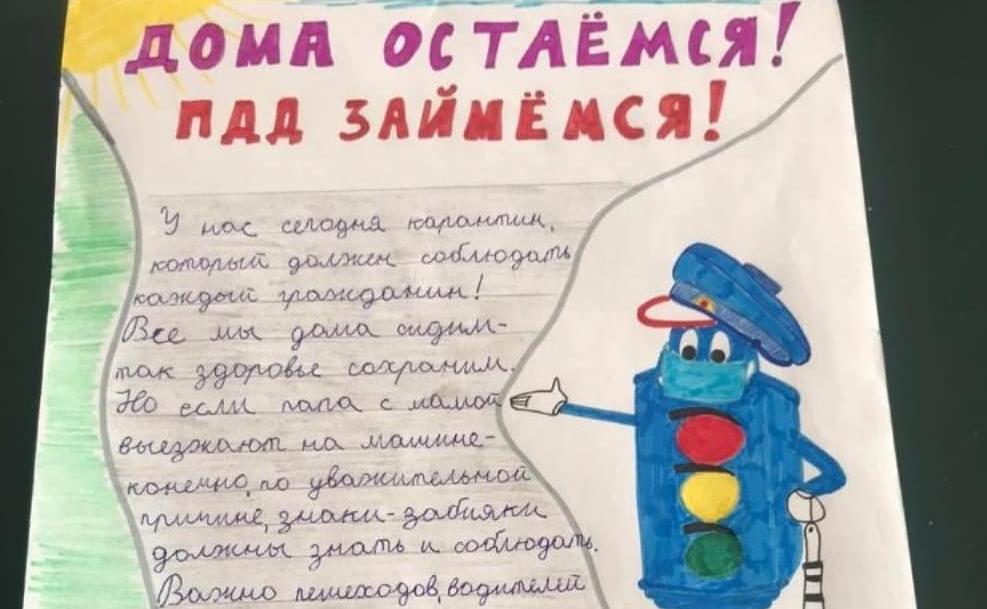 ДОМА ОСТАЁМСЯ!
ПДД ЗАЙМЁМСЯ!
У нас сегодня карантин,
который должен соблюдать
каждый гражданин!
Все мы дома сидим-
так здоровье сохраним.
Но если папа с мамой
выезжают на машине-
конечно, по уважительной
причине, знаки-забияки
должны знать и соблюдать.
Важно пешеходов, водителей